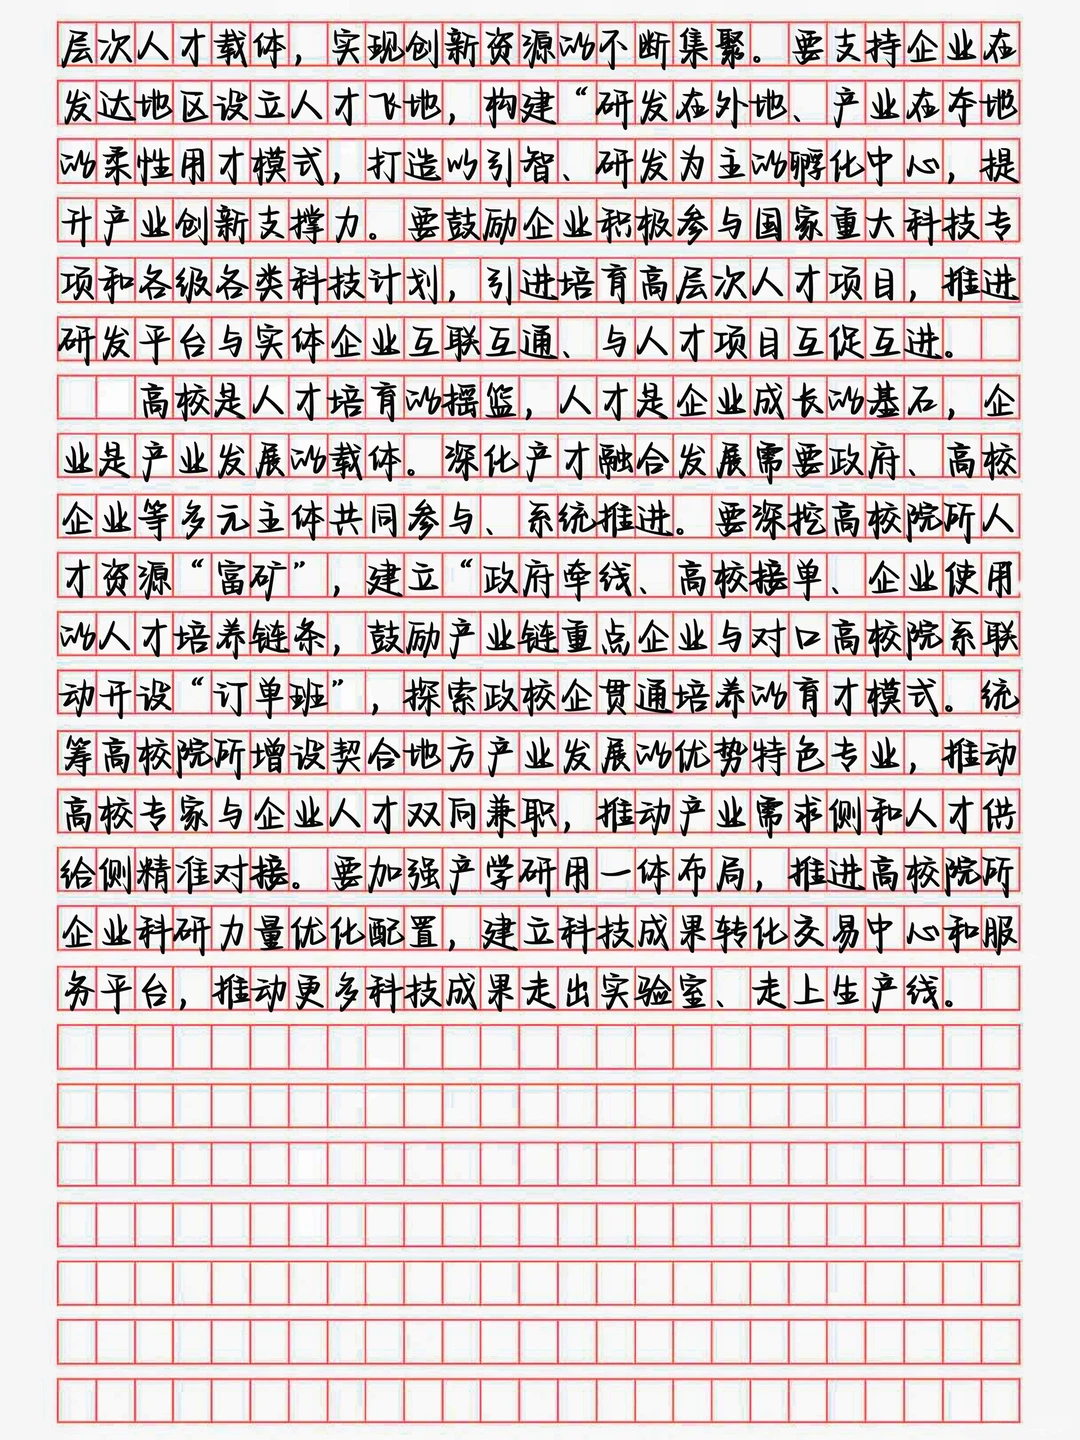 层次人才载体，实现创新资源的不断集聚。要支持企业在
发达地区设立人才飞地，构建“研发在外地、产业在本地
的柔性用才模式，打造以引智、研发为主的孵化中心，提
升产业创新支撑力。要鼓励企业积极参与国家重大科技专
项和各级各类科技计划，引进培育高层次人才项目，推进
研发平台与实体企业互联互通、与人才项目互促互进。
高校是人才培育的摇篮，人才是企业成长的基石，企
业是产业发展的载体。深化产才融合发展需要政府、高校
企业等多元主体共同参与、系统推进。要深挖高校院所人
才资源“富矿”，建立“政府牵线、高校接单、企业使用
的人才培养链条，鼓励产业链重点企业与对口高校院系联
动开设“订单班”，探索政校企贯通培养的育才模式。统
筹高校院所增设契合地方产业发展的优势特色专业，推动
高校专家与企业人才双向兼职，推动产业需求侧和人才供
给侧精准对接。要加强产学研用一体布局，推进高校院所
企业科研力量优化配置，建立科技成果转化交易中心和服
务平台，推动更多科技成果走出实验室、走上生产线。